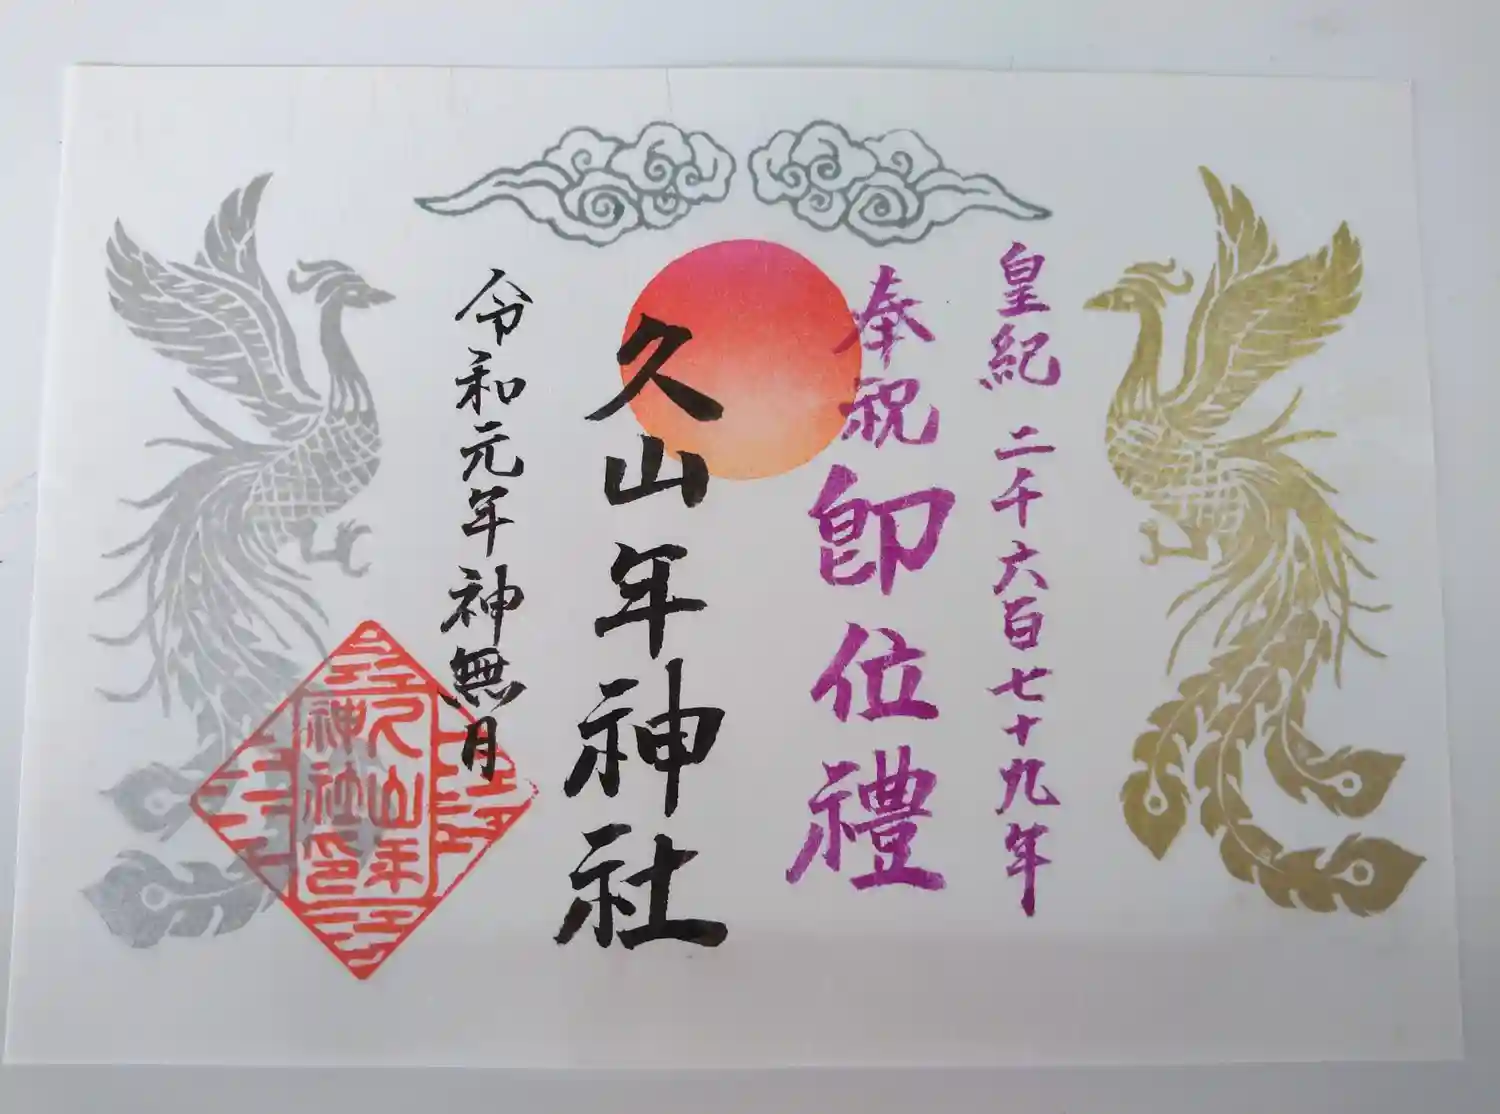 皇紀 二千六百七十九年
奉祝 即位禮
久山年神社
令和元年神無月
久山年
神社印